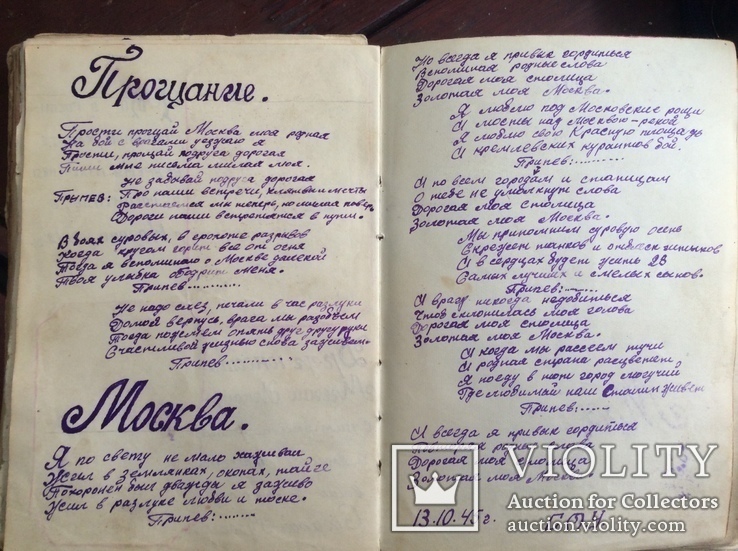 Прощание.
Прости прощай Москва моя родная
На бой с врагами уезжаю я
Прости, прощай подруга дорогая
Пиши мне письма милая моя.
Не забывай подруга дорогая
Припев: Про наши встречи, клятвы и мечты
Расстаемся мы теперь, но милая поверь
Дороги наши встретятся в пути.
В боях суровых, в грохоте разрывов
Когда кругом горит всё от огня
Тогда я вспоминаю о Москве далекой
Твоя улыбка ободрит меня.
Припев..........
Не надо слез, печали в час разлуки
Домой вернусь, врага мы разобьем
Тогда пожмем опять друг другу руки
Счастливой жизнью снова заживем.
Припев:..........
Москва.
Я по свету не мало хаживал
Жил в землянках, окопах, тайге
Похоронен был дважды я заживо
Жил в разлуке любви и тоске.
Припев:.........
Но всегда я привык гордиться
Вспоминая родные слова
Дорогая моя столица
Золотая моя Москва.
Я люблю под Московские рощи
И мосты над Москвою-рекой
Я люблю свою Красную площадь
И кремлевских курантов бой.
Припев:......
И по всем городам и станицам
О тебе не умолкнут слова
Дорогая моя столица
Золотая моя Москва.
Мы припомним суровую осень
Скрежет танков и отблеск штыков
И в сердцах будут жить 28
Самых лучших и смелых сынов.
Припев:......
И врагу никогда недобиться
Чтоб склонилась моя голова
Дорогая моя столица
Золотая моя Москва.
И когда мы рассеем тучи
И родная страна расцветет
Я поеду в тот город могучий
Где любимый наш Сталин живет
Припев:.......
И всегда я привык гордиться
родные слова
Дорогая моя столица
Золотая моя Москва.
13.10.45 г.
VIOLITY
Auction for Collectors
auction.violity.com